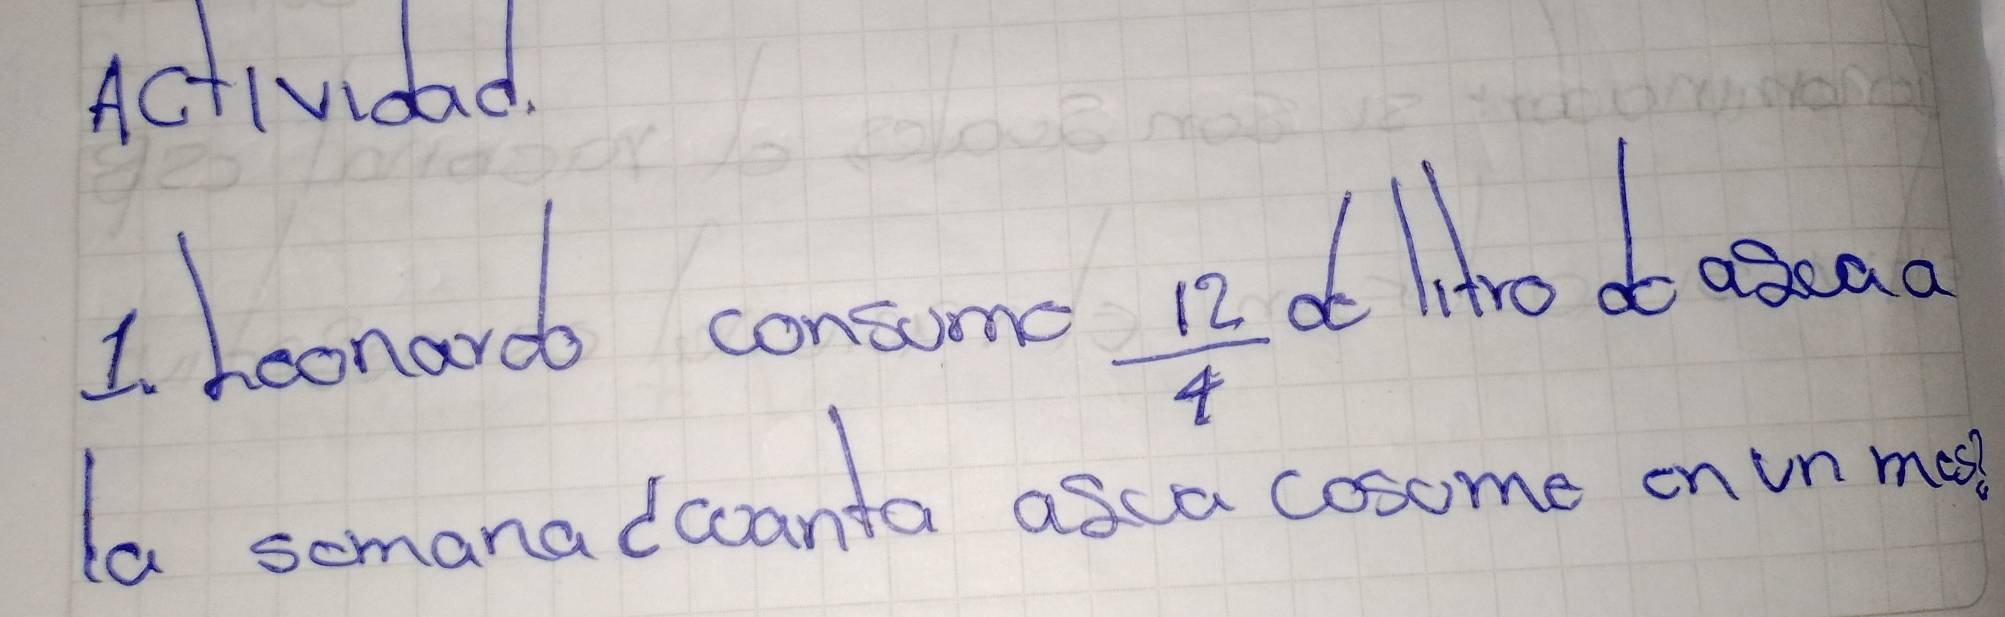 Actividad.
1. Leonardo consume 12/4 de litro de agua a
la semana ¿cuanta agua cosume en un mes?